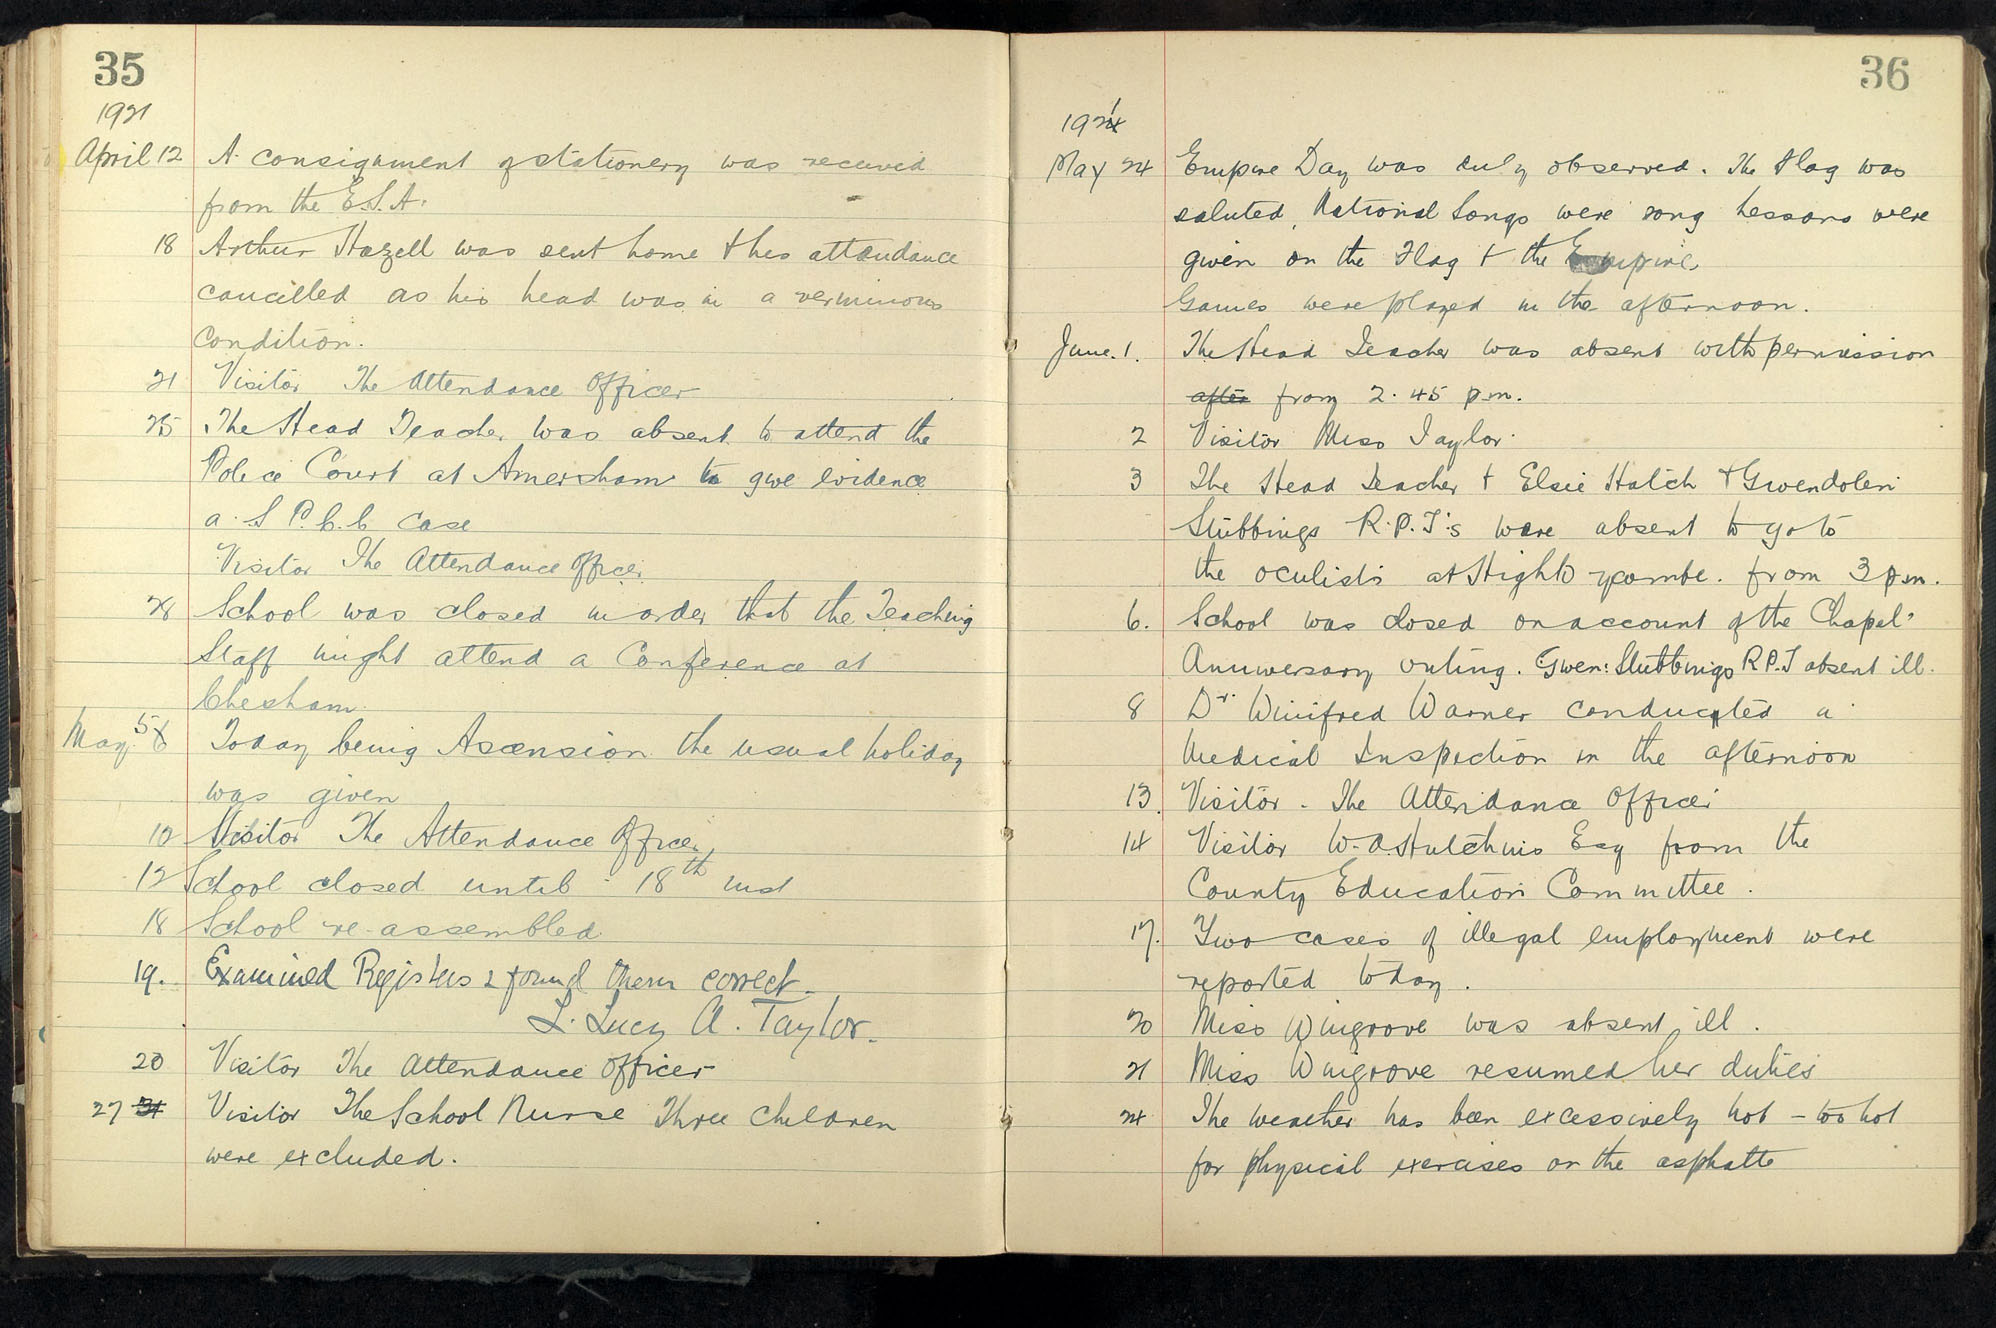 35
1921
April 12 A consignment of stationery was received
from the E.S.A.
18 Arthur Hazell was sent home & his attendance
cancelled as his head was in a verminous
condition.
21 Visitor The Attendance Officer
25 The Head Teacher was absent to attend the
Police Court at Amersham to give evidence
a S.P.C.C case
Visitor The Attendance Officer
28 School was closed in order that the Teaching
Staff might attend a Conference at
Chesham.
May 5 Today being Ascension the usual holiday
was given
10 Visitor The Attendance Officer
12 School closed until 18th inst
18 School re-assembled
19. Examined Registers & found them correct.
L. Lucy A. Taylor.
20 Visitor The Attendance Officer
27 31 Visitor The School Nurse Three Children
were excluded.
36
1921
May 24 Empire Day was duly observed. The Flag was
saluted, National Songs were song Lessons were
given on the Flag & the Empire
Games were played in the afternoon.
June. 1. The Head Teacher was absent with permission
after from 2.45 p.m.
2 Visitor Miss Taylor.
3 The Head Teacher & Elsie Hatch & Gwendolen
Stubbings R.P.T's were absent to go to
the oculists at High Wycombe. from 3 p.m.
6. School was closed on account of the Chapel
Anniversary outing. Gwen: Stubbings R.P.T absent ill.
8 Dr Winifred Warner conducted a
Medical Inspection in the afternoon
13. Visitor - The Attendance Officer
14 Visitor W. A. Hutchins Esq from the
County Education Committee.
17. Two cases of illegal employment were
reported today.
20 Miss Wingrove was absent, ill.
21 Miss Wingrove resumed her duties
24 The weather has been excessively hot - too hot
for physical exercises on the asphalte